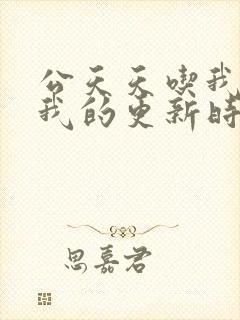 公天天喫我
我的更新時
思嘉君